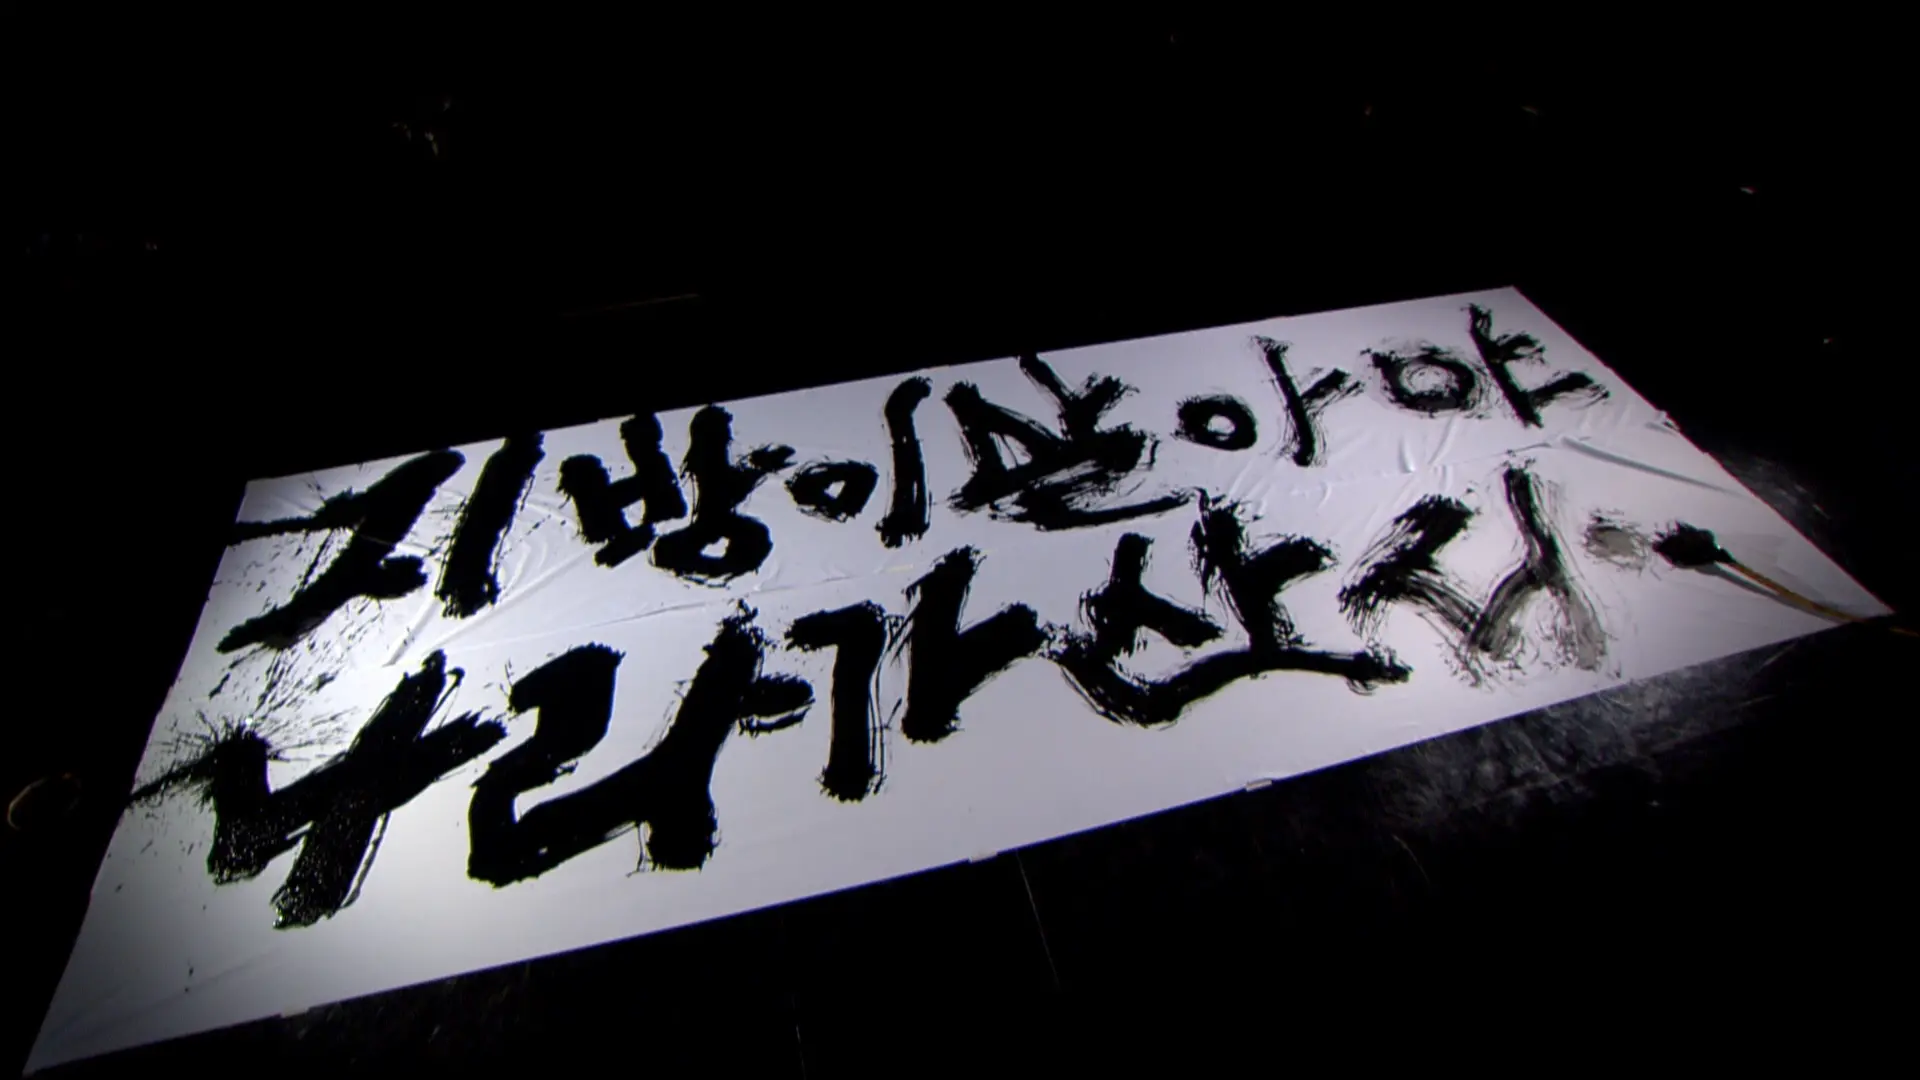 지방이 살아야
나라가 산다